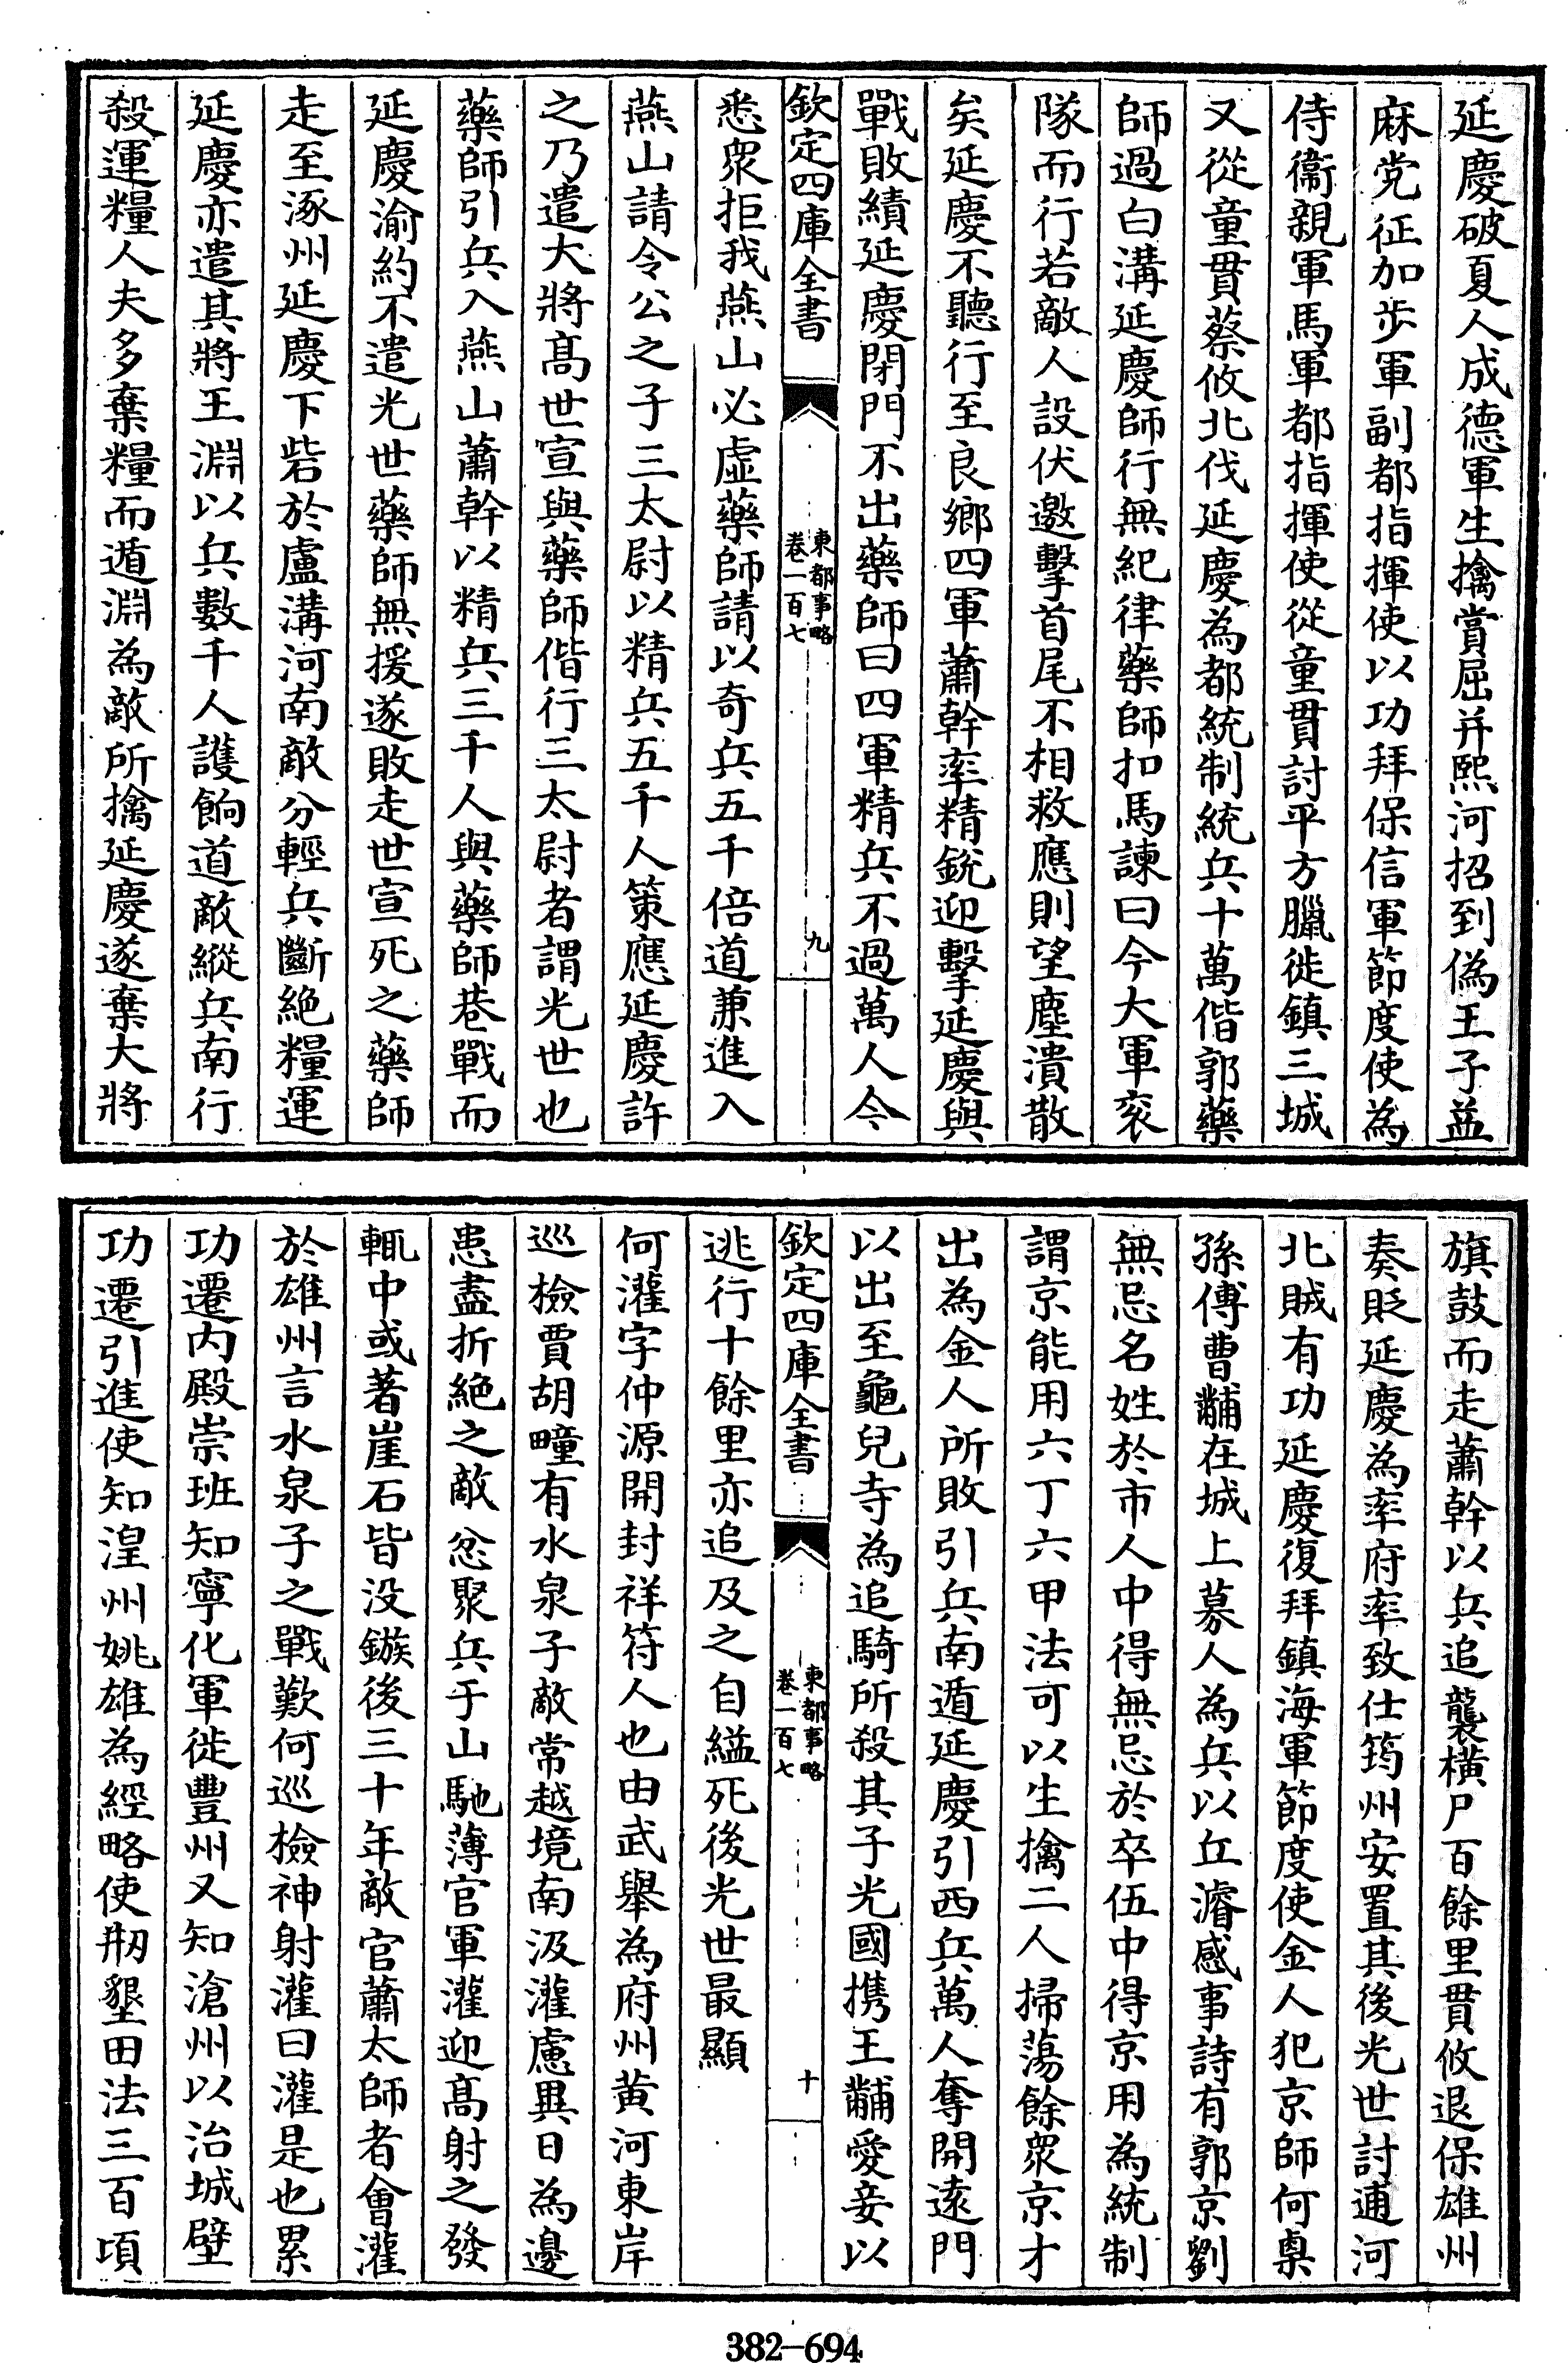 延慶破夏人成德軍生擒賞屈并熙河招到偽王子益
麻党征加步軍副都指揮使以功拜保信軍節度使為
侍衞親軍馬軍都指揮使從童貫討平方臘徙鎮三城
又從童貫蔡攸北伐延慶為都統制統兵十萬偕郭藥
師過白溝延慶師行無紀律藥師扣馬諫曰今大軍衮
隊而行若敵人設伏邀擊首尾不相救應則望塵潰散
矣延慶不聽行至良鄉四軍蕭幹率精銳迎擊延慶與
戰敗績延慶閉門不出藥師曰四軍精兵不過萬人今
欽定四庫全書
東都事略
卷一百七
九
悉衆拒我燕山必虛藥師請以奇兵五千倍道兼進入
燕山請令公之子三太尉以精兵五千人策應延慶許
之乃遣大將髙世宣與藥師偕行三太尉者謂光世也
藥師引兵入燕山蕭幹以精兵三千人與藥師巷戰而
延慶渝約不遣光世藥師無援遂敗走世宣死之藥師
走至涿州延慶下砦於盧溝河南敵分輕兵斷絶糧運
延慶亦遣其將王淵以兵數千人護餉道敵縱兵南行
殺運糧人夫多棄糧而遁淵為敵所擒延慶遂棄大將
旗鼓而走蕭幹以兵追襲横尸百餘里貫攸退保雄州
奏貶延慶為率府率致仕筠州安置其後光世討逋河
北賊有功延慶復拜鎮海軍節度使金人犯京師何㮚
孫傅曹輔在城上募人為兵以丘濬感事詩有郭京劉
無忌名姓於市人中得無忌於卒伍中得京用為統制
謂京能用六丁六甲法可以生擒二人掃蕩餘衆京才
出為金人所敗引兵南遁延慶引西兵萬人奪開逺門
以出至龜兒寺為追騎所殺其子光國攜王黼愛妾以
欽定四庫全書
東都事略
卷一百七
十
逃行十餘里亦追及之自縊死後光世最顯
何灌字仲源開封祥符人也由武舉為府州黄河東岸
巡檢賈胡疃有水泉子敵常越境南汲灌慮異日為邊
患盡折絶之敵忿聚兵于山馳薄官軍灌迎髙射之發
輒中或著崖石皆没鏃後三十年敵官蕭太師者會灌
於雄州言水泉子之戰歎何巡檢神射灌曰灌是也累
功遷内殿崇班知寧化軍徙豐州又知滄州以治城壁
功遷引進使知湟州姚雄為經略使剏墾田法三百頃
382-694